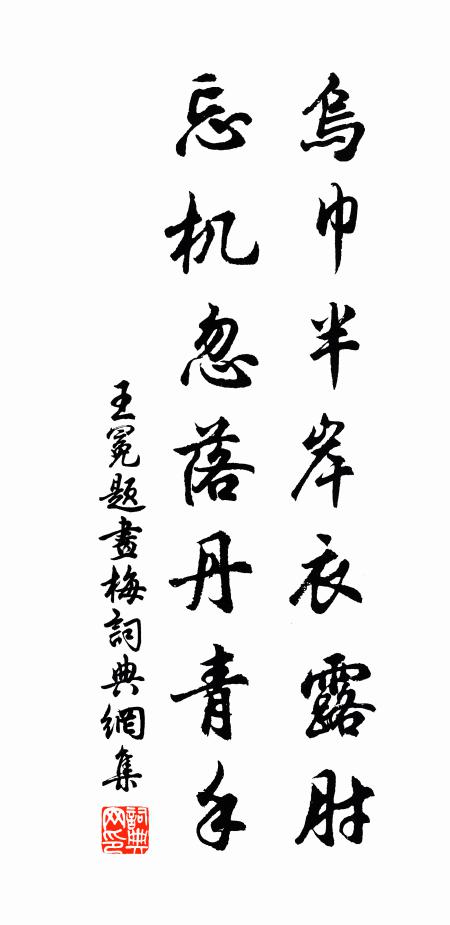 烏巾半岸衣露肘
忘机忽落丹青手
王冕題畫梅詞典網集
詞典網印